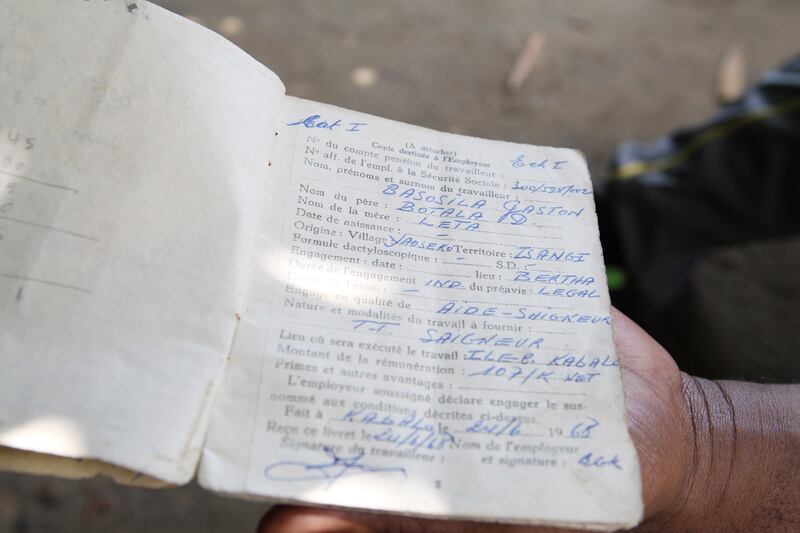 Ect I
(A détacher)
Copie destinée à l'Employeur Ech I
N° du compte pension du travailleur :
N° aff. de l'empl. à la Sécurité Sociale : 300/598/002
Nom, prénoms et surnom du travailleur :
BASOSILA GASTON
Nom du père : BOTALA D.
Nom de la mère : LETA
Date de naissance : -
Origine : Village YAOSEKO Territoire : ISANGI
Formule dactyloscopique : - S.D. :
Engagement : date : lieu : BERTHA
Durée de l'engagement IND. du préavis : LEGAL
Durée de l'essai : -
Engagé en qualité de AIDE-SAIGNEUR
Nature et modalités du travail à fournir :
T.T. SAIGNEUR
Lieu où sera exécuté le travail : ILE-B. KABALO
Montant de la rémunération : 107/K NET
Primes et autres avantages :
L'employeur soussigné déclare engager le sus-
nommé aux conditions décrites ci-dessus.
Fait à KABALO le 24/6 1968
Reçu ce livret le 24/6/68 Nom de l'employeur
Signature du travailleur : et signature : BGK
3